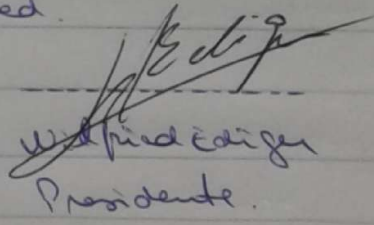 ed.
Wilfried Ediger
Presidente.